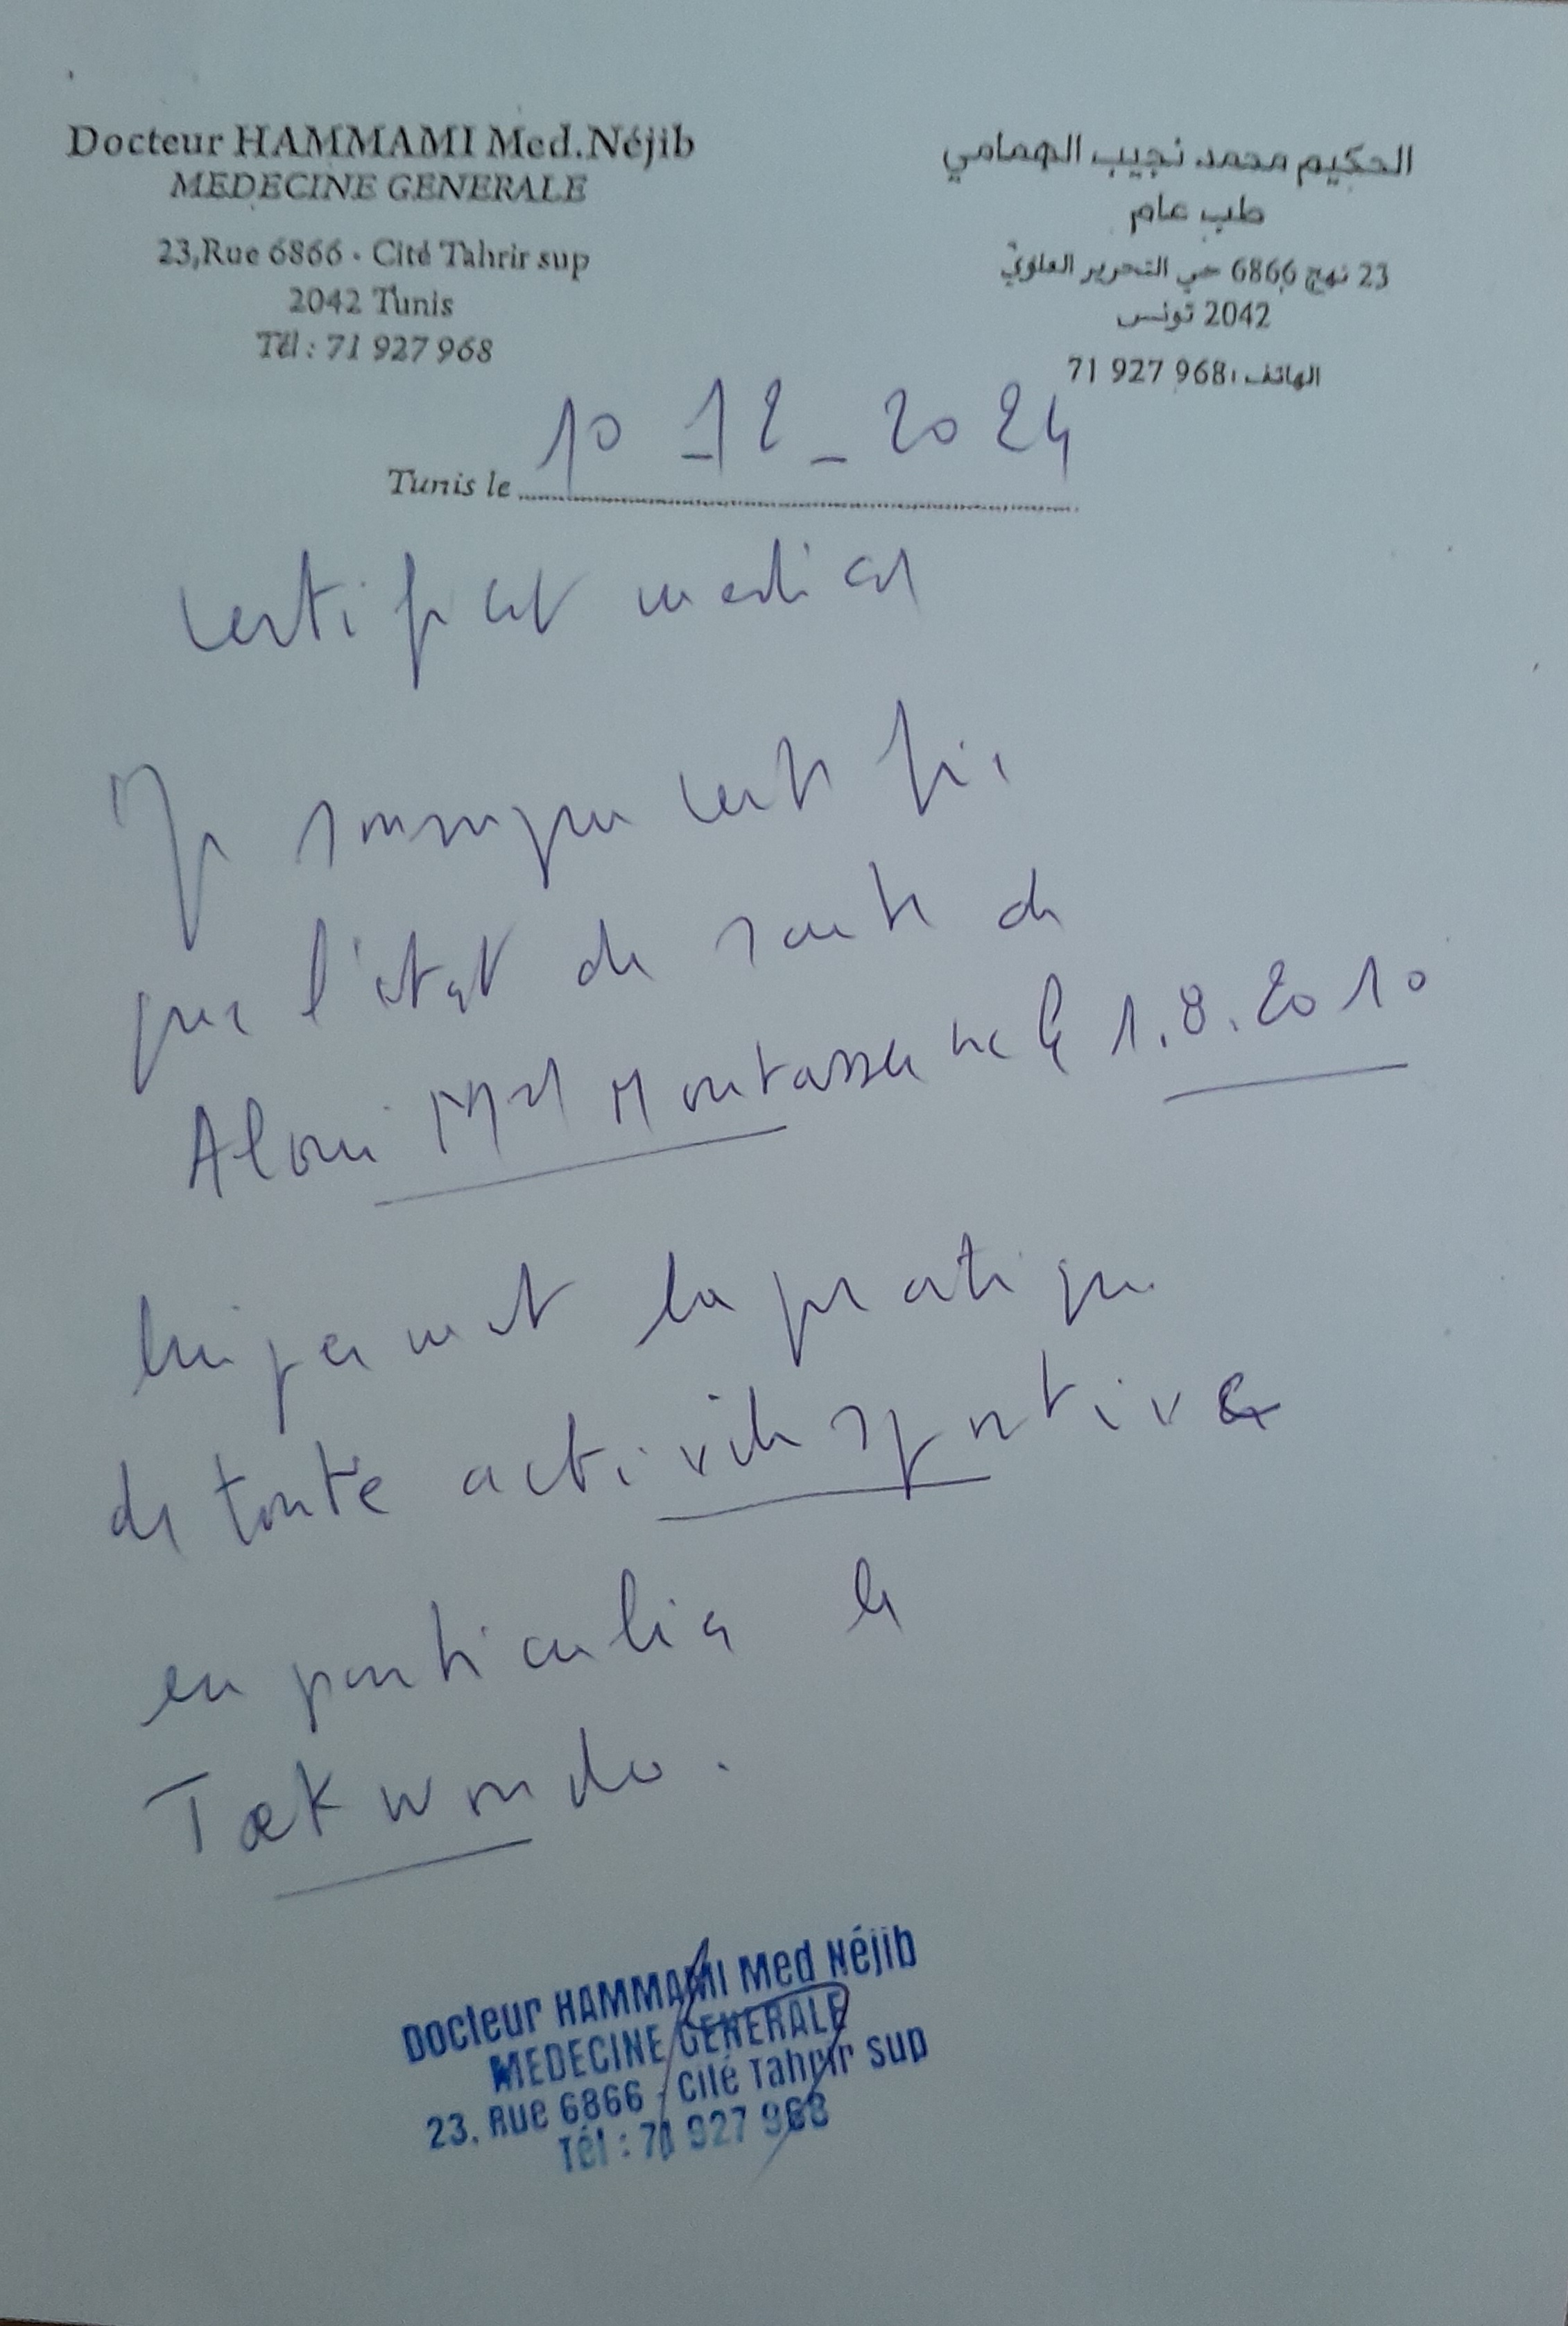 Docteur HAMMAMI Med.Néjib
MEDECINE GENERALE
23,Rue 6866 - Cité Tahrir sup
2042 Tunis
Tél : 71 927 968
الحكيم محمد نجيب الهمامي
طب عام
23 نهج 6866 حي التحرير العلوي
2042 تونس
الهاتف : 71 927 968
Tunis le 10_12_2024
Certificat medical
Je soussigne certifie
que l'etat de sante de
Aloui Md Montasser ne le 1.8.2010
lui permet la pratique
de toute activite sportive
en particulier le
Taekwondo.
Docteur HAMMAMI Med Néjib
MEDECINE GENERALE
23, Rue 6866 - Cité Tahrir sup
Tél : 71 927 968